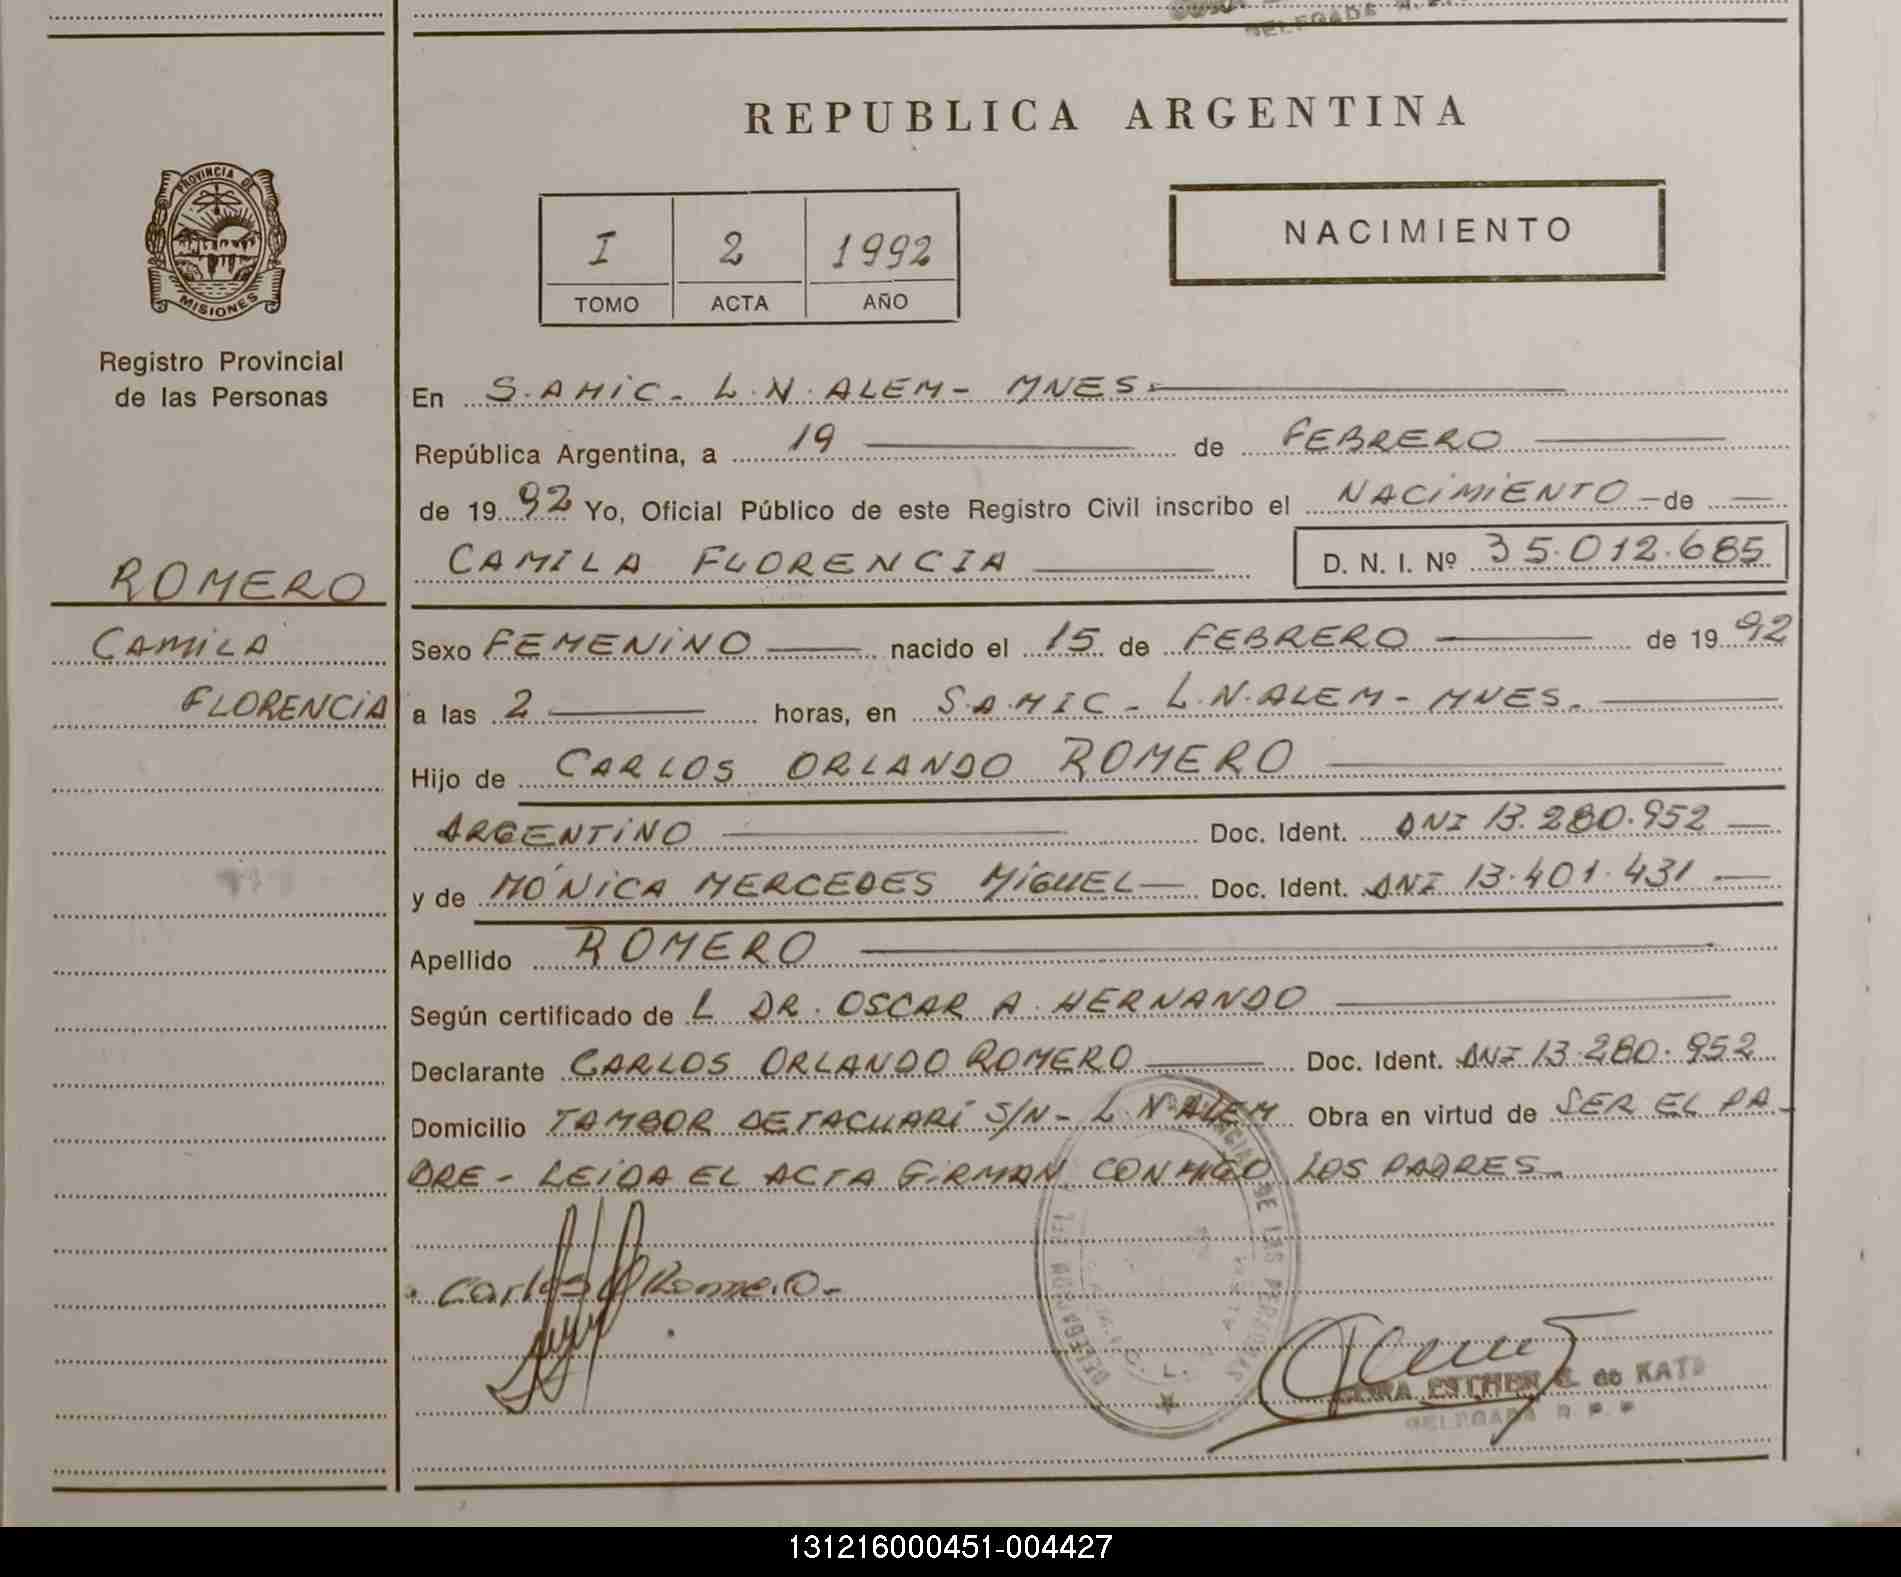 DELEGADA R.
REPUBLICA ARGENTINA
PROVINCIA DE
MISIONES
Registro Provincial
de las Personas
I 2 1992
TOMO ACTA AÑO
NACIMIENTO
En S.AMIC - L.N.ALEM - MNES.
República Argentina, a 19 de FEBRERO
de 1992 Yo, Oficial Público de este Registro Civil inscribo el NACIMIENTO de
CAMILA FLORENCIA D. N. I. Nº 35.012.685
ROMERO
CAMILA
FLORENCIA
Sexo FEMENINO nacido el 15 de FEBRERO de 1992
a las 2 horas, en S.A.MIC - L.N.ALEM - MNES.
Hijo de CARLOS ORLANDO ROMERO
ARGENTINO Doc. Ident. DNI 13.280.952
y de MÓNICA MERCEDES MIGUEL Doc. Ident. DNI 13.401.431
Apellido ROMERO
Según certificado de L DR. OSCAR A. HERNANDO
Declarante CARLOS ORLANDO ROMERO Doc. Ident. DNI 13.280.952
Domicilio TAMBOR DE TACUARÍ S/N - L.N.ALEM Obra en virtud de SER EL PA-
DRE - LEIDA EL ACTA FIRMAN CONMIGO LOS PADRES.
Carlos O Romero
DE LAS PERSONAS
DELEGACION
ESTHER de KATZ
DELEGADA R.P.P
131216000451-004427